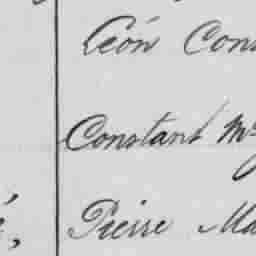 Léon Cons
Constant M
é, Pierre Ma